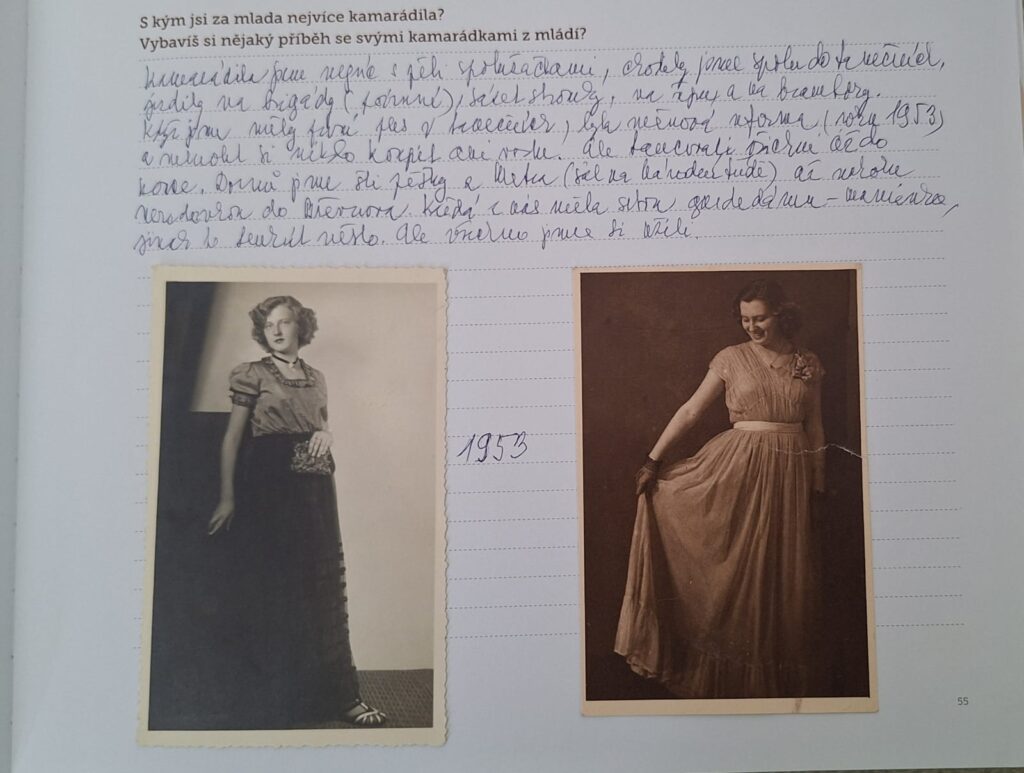 S kým jsi za mlada nejvíce kamarádila?
Vybavíš si nějaký příběh se svými kamarádkami z mládí?
Kamarádila jsem nejvíc s pěti spolužačkami, chodily jsme spolu do tanečních,
jezdily na brigády (povinné), sázet stromy, na řepu a na brambory.
Když jsme měly první ples v tanečních, byla měnová reforma (roku 1953)
a nemohl si nikdo koupit ani vodu. Ale tancovali všichni až do
konce. Domů jsme šli pěšky z (sál na Národní třídě) až
do Každá z nás měla sebou gardedámu - maminku,
jinak to tenkrát nešlo. Ale všechno jsme si užili.
1953
55